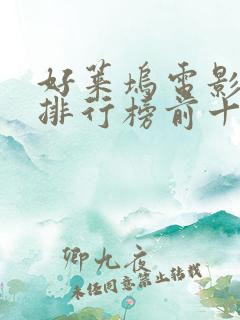 好莱坞电影
排行榜前十
卿九夜
未经同意禁止转载